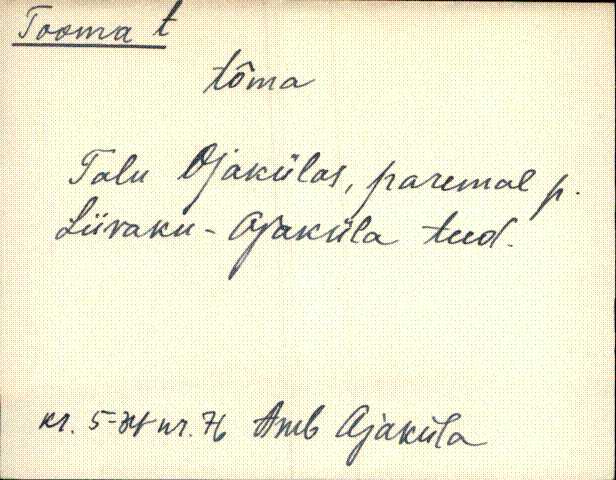 Tooma t
tôma
Talu Ojakülas, paremal p.
Liivaku - Ajaküla teed.
kr. 5- nr. 76 Amb Ajaküla